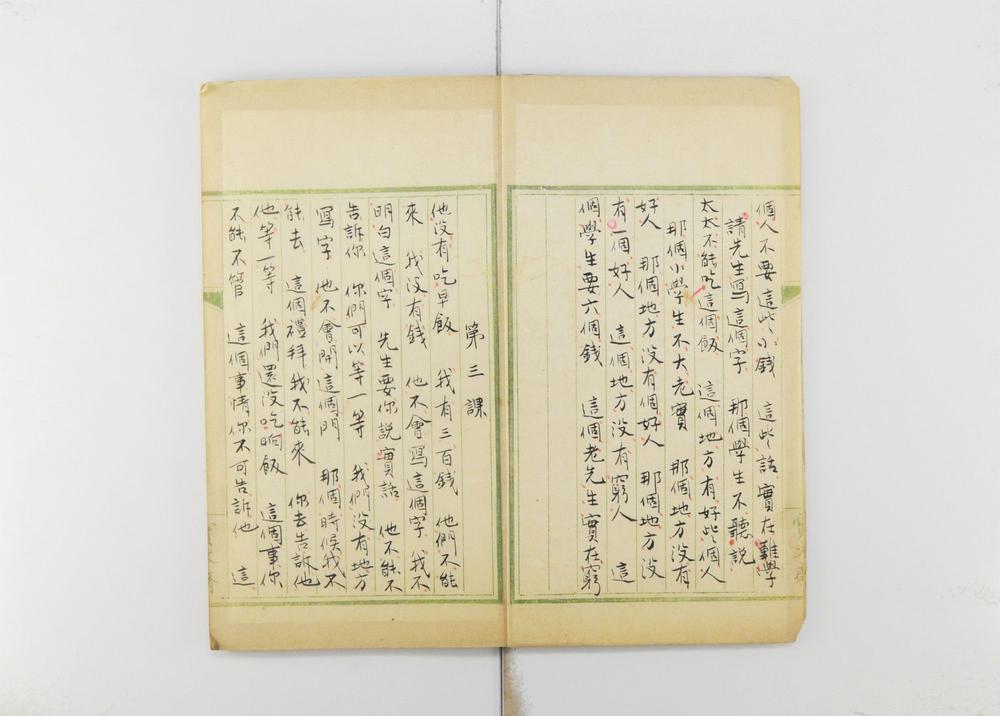 個人不要這些小錢　這些話實在難學
請先生寫這個字　那個學生不聽説
太太不能吃這個飯　這個地方有好些個人
那個小學生不大老實　那個地方没有
好人　那個地方没有個好人　那個地方没
有一個好人　這個地方没有窮人　這
個學生要六個錢　這個老先生實在窮
第三課
他没有吃早飯　我有三百錢　他們不能
來　我没有錢　他不會寫這個字　我不
明白這個字　先生要你説實話　他不能不
告訴你　你們可以等一等　我們没有地方
寫字　他不會開這個門　那個時候我不
能去　這個禮拜我不能來　你去告訴他
他等一等　我們還没吃晌飯　這個事你
不能不管　這個事情你不可告訴他　這